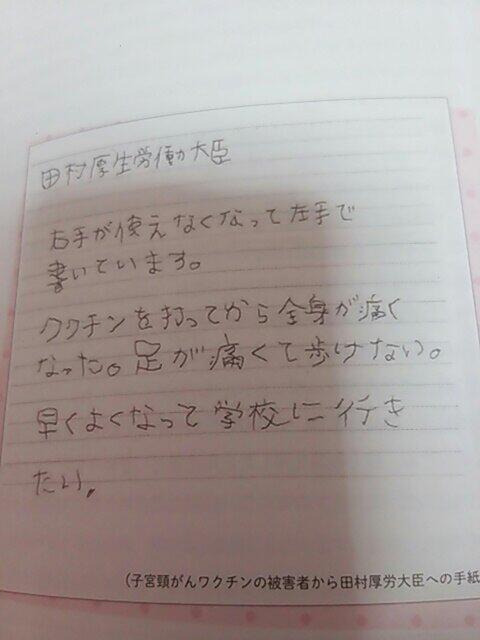 田村厚生労働大臣
右手が使えなくなって左手で
書いています。
ワクチンを打ってから全身が痛く
なった。足が痛くて歩けない。
早くよくなって学校に行き
たい。
(子宮頸がんワクチンの被害者から田村厚労大臣への手紙